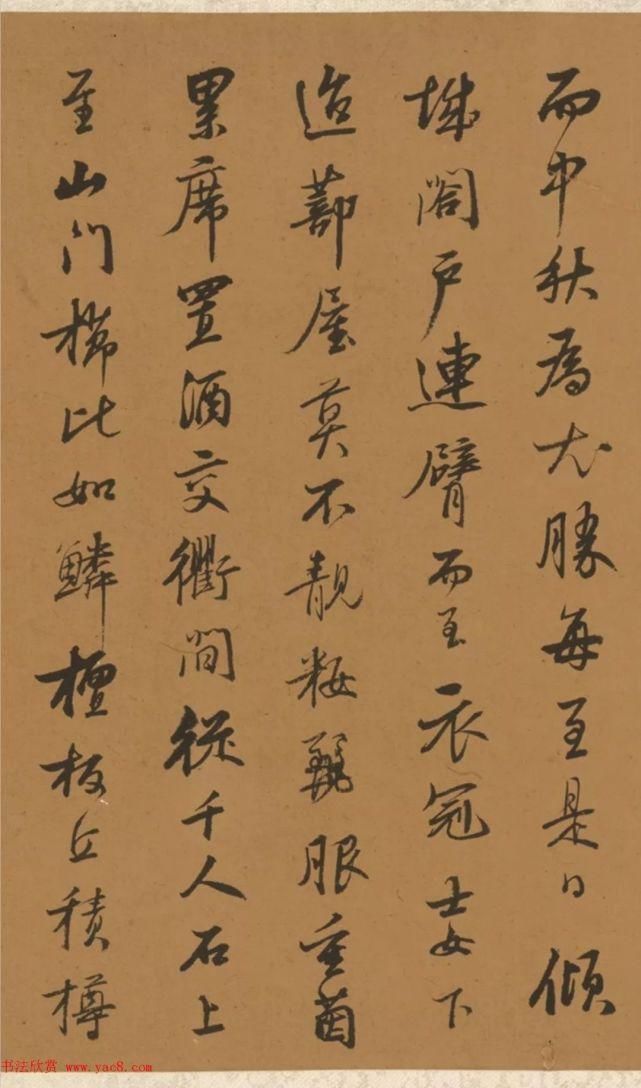 而中秋為尤勝每至是日傾
城闔戶連臂而至衣冠士女下
迨蔀屋莫不靚粧麗服重茵
累席置酒交衢間從千人石上
至山門櫛比如鱗檀板丘積樽
书法欣赏 www.yac8.com